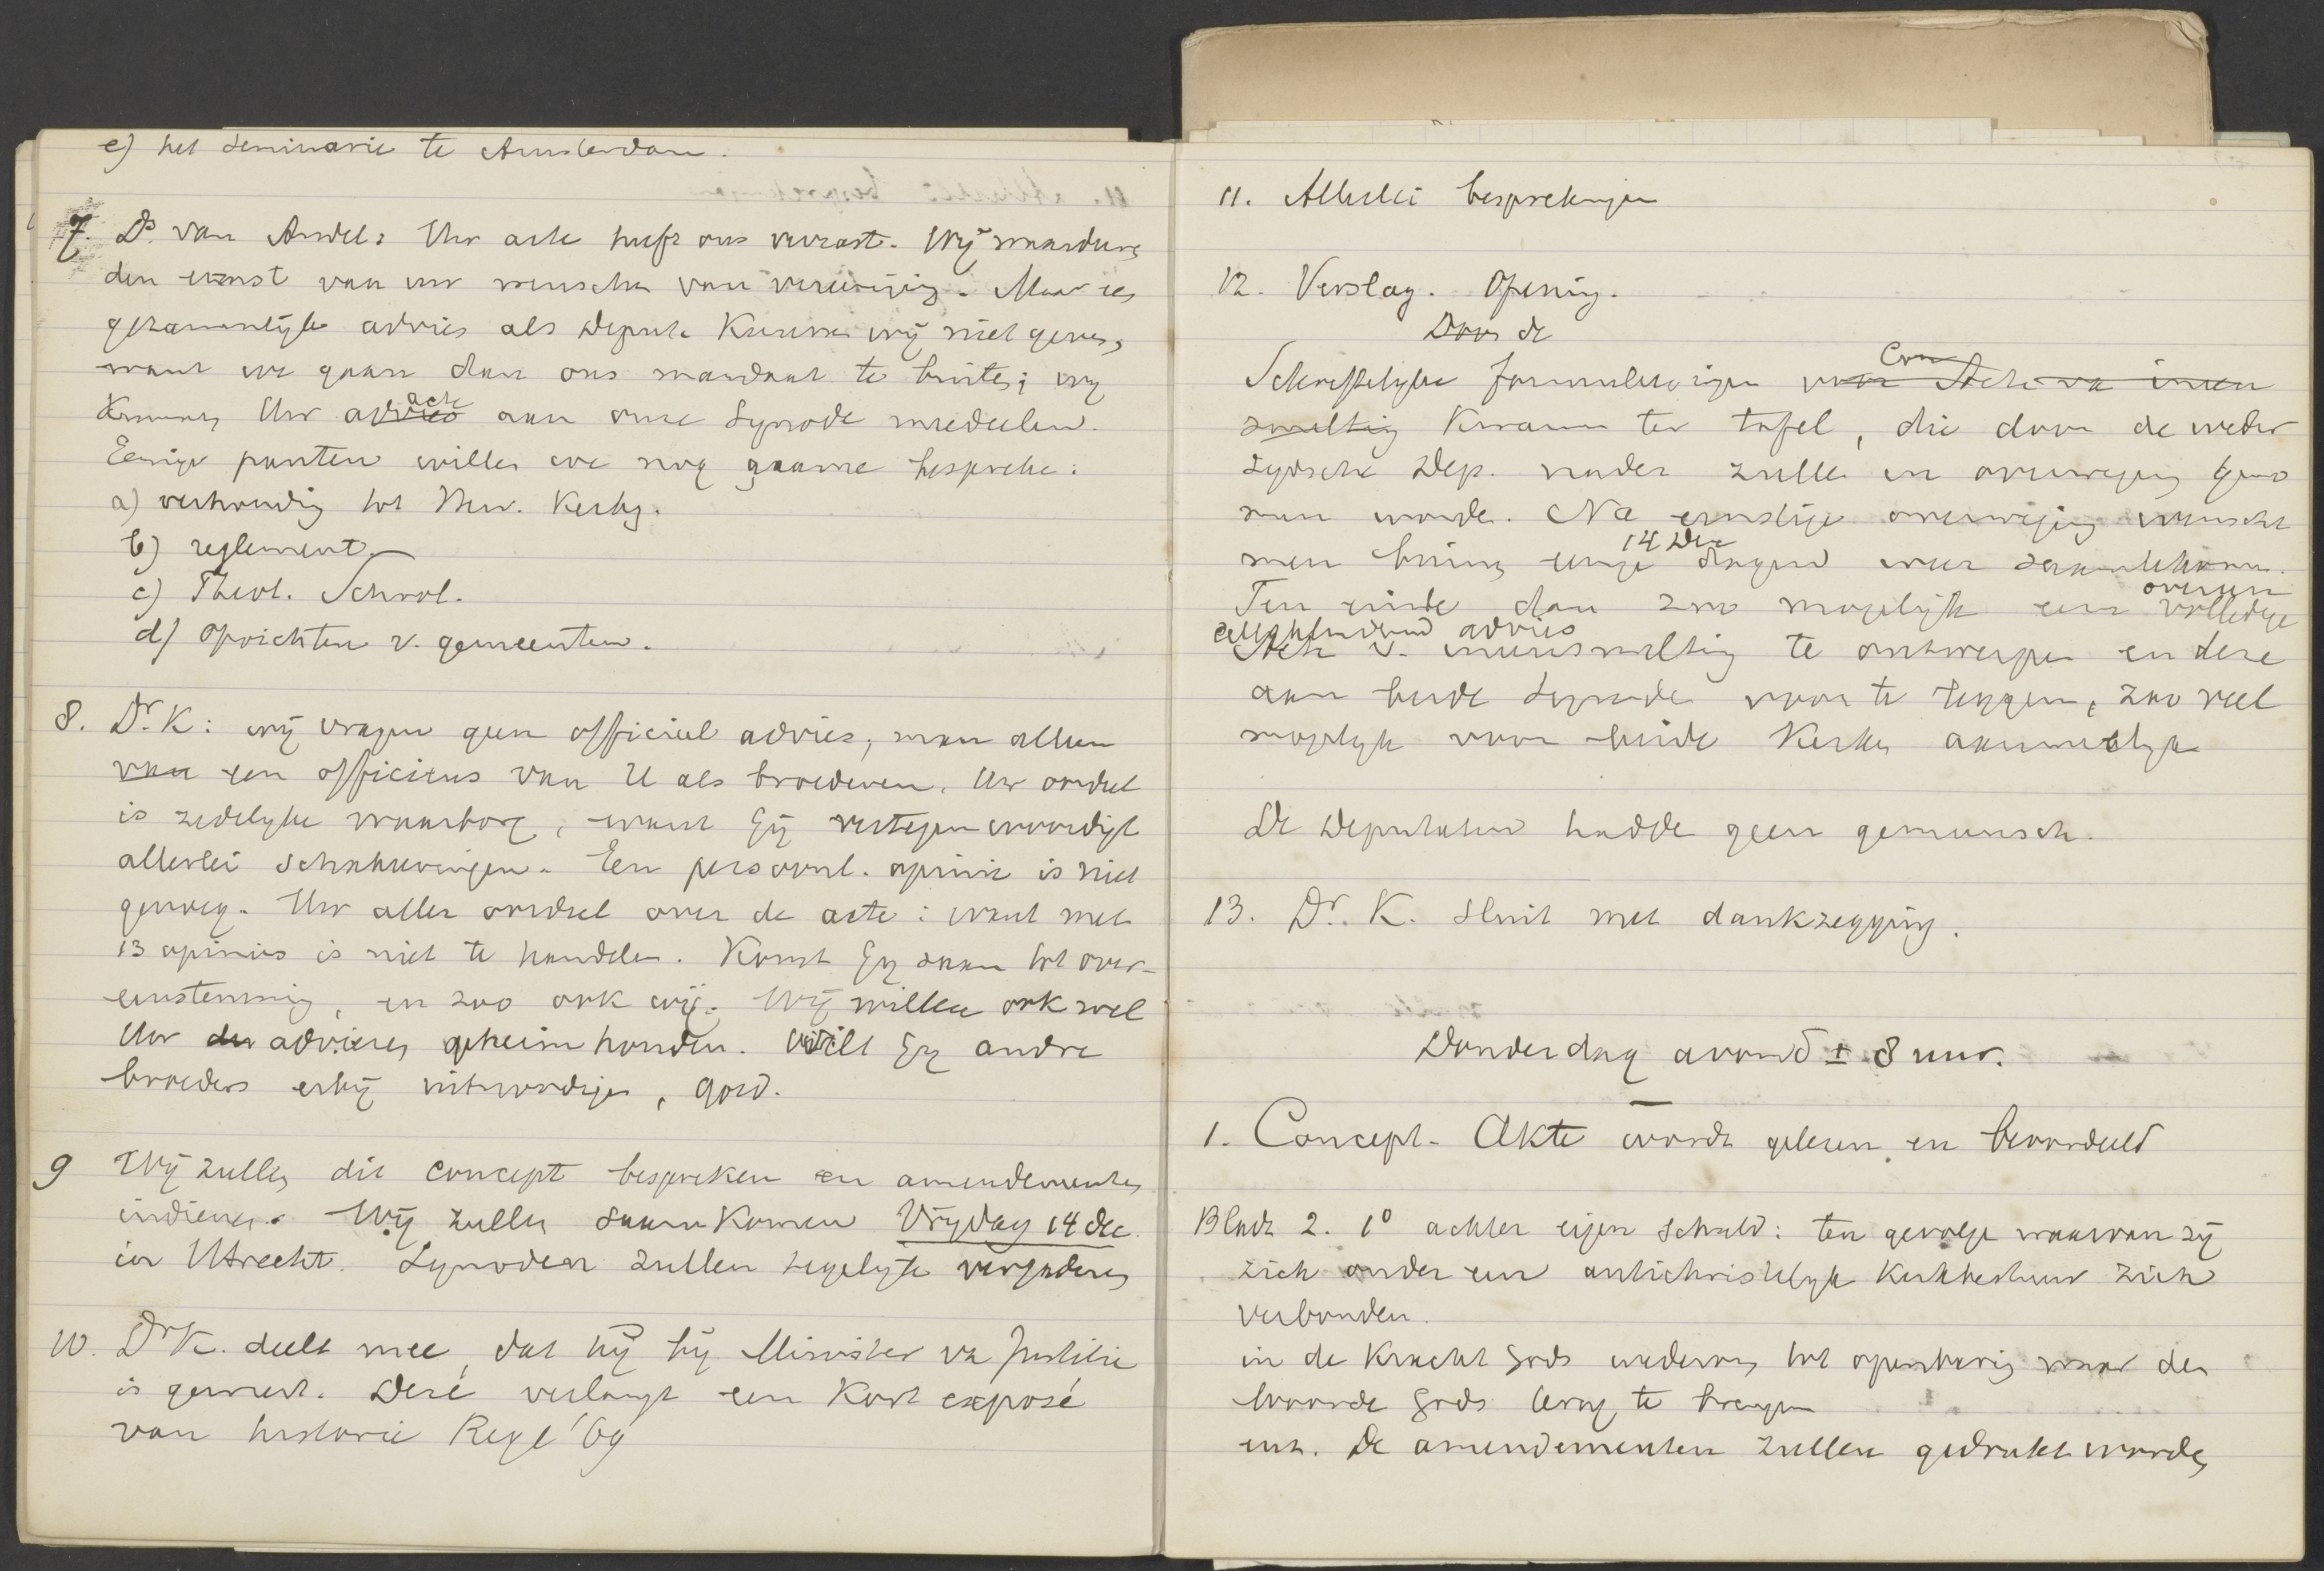 e) het Seminarie te Amsterdam.
7. Ds. van Andel: Uw acte heeft ons verrast. Wij waardeeren
den ernst van uw wenschen van vereeniging. Maar een
gezamenlijk advies als Deput. kunnen wij niet geven,
want we gaan dan ons mandaat te buiten; wij
kunnen Uw advies acte aan onze Synode mededeelen.
Eenige punten willen we nog gaarne bespreken:
a) verhouding tot Kerkg.
b) reglement
c) Theol. School.
d) oprichten v. gemeenten.
8. Dr. K: wij vragen geen officieel advies, maar alleen
van een officieus van U als broederen. Uw oordeel
is zedelijke waarborg, want Gij vertegenwoordigt
allerlei schakeeringen. Een persoonl. opinie is niet
genoeg. Uw aller oordeel over de acte: want met
13 opinies is niet te handelen. Komt Gij saam tot over-
eenstemming, en zoo ook wij. Wij willen ook wel
Uw adviezen geheim houden. Wilt Gij andre
broeders erbij uitnoodigen, goed.
9 Wij zullen dit concept bespreken en amendementen
indienen. Wij zullen saamkomen Vrijdag 14 dec.
in Utrecht. Synodeen zullen tegelijk vergaderen
10. Dr K. deelt mee, dat hij bij Minister va Justitie
is geweest. Deze verlangt een kort exposé
van historie Regl '69
11. Allerlei besprekingen
12. Verslag. Opening.
Door de
Schriftelijke formuleeringen voor Con Acte va ineen
smelting kwamen ter tafel, die door de weder
zijdsche Dep. nader zullen in overweging geno
men worden. Na ernstige overweging wenscht
men binnen eenige dagen 14 Dec weer saam te komen.
Ten einde dan zoo mogelijk een volledige
advies
Acte v. ineensmelting te ontwerpen en deze
aan beide Synoden voor te leggen, zoo veel
mogelijk voor beide Kerken aannemelijk
De Deputaten hadden geen
13. Dr. K. sluit met dankzegging.
Donderdag avond ± 8 uur.
1. Concept-Akte wordt gelezen en beoordeeld
Bladz 2. 1o achter eigen schuld: ten gevolge waarvan zij
zich onder een antichristelijk kerkbestuur zich
verbonden.
in de kracht Gods wederom tot openbaring naar den
woorde Gods terug te brengen
enz. De amendementen zullen gedrukt worden